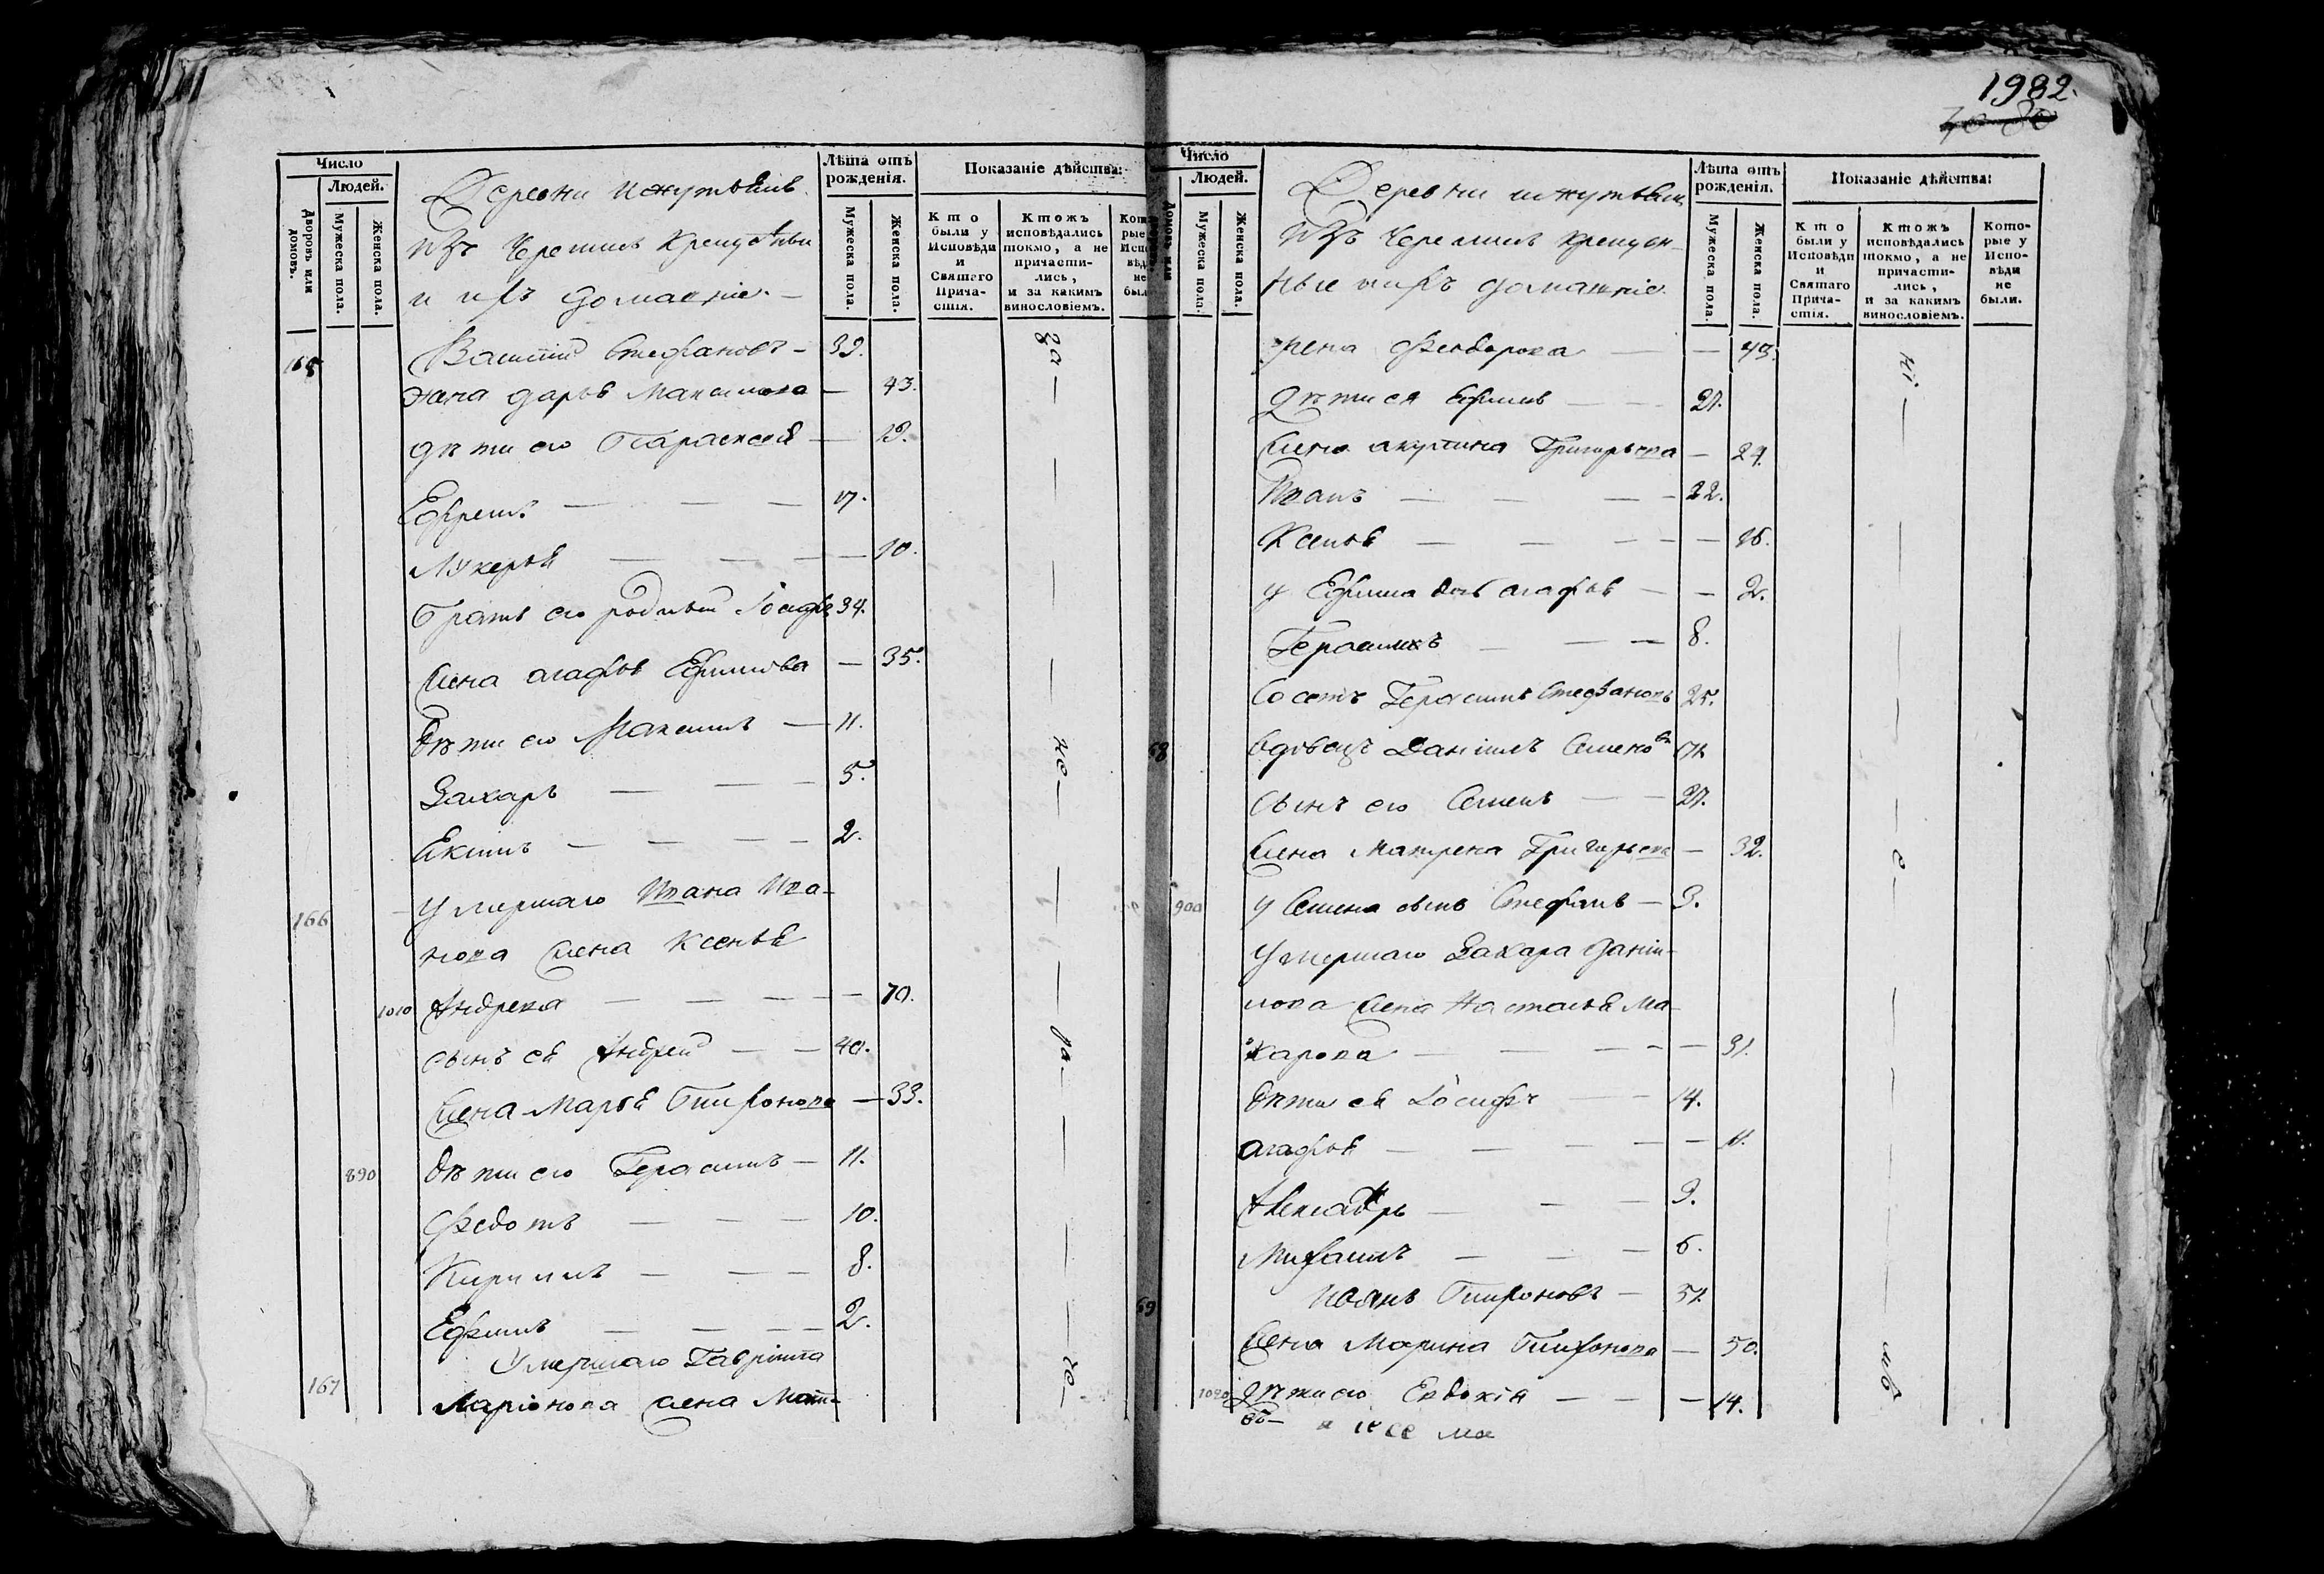 1982.
Число
Людей.
Дворовъ или домовъ.
Мужеска пола.
Женска пола.
Деревни
изъ Черемисъ Крещеныи
и ихъ домашніе.
Лѣта отъ рожденія.
Мужеска пола.
Женска пола.
Показаніе дѣйства:
Кто были у Исповѣди и Святаго Причастія.
Ктожъ исповѣдались токмо, а не причастились, и за какимъ винословіемъ.
Которые у Исповѣди не был
165 Василій Стефановъ — 39.
жена Дарья Максимова — 43.
дѣти его Параскева — 19.
Ефремъ — — — 17.
Лукерья — — — 10.
Братъ его родный Іосифъ 34.
Жена Агафья Ефимова — 35.
Дѣти его Максимъ — 11.
Захаръ — — — 5.
Екимъ — — — — 2.
166 Умершаго Ивана Ива-
нова жена Ксенья
1010 Андрева — — — — 70.
сынъ ея Андрей — — 40.
Жена Марья Тихонова — 33.
890 дѣти его Герасимъ — 11.
Федотъ — — — 10.
Кирилъ — — — 8.
Ефимъ — — — — 2.
Умершаго Гавріила
167 Ларіонова жена Мат-
за — не — ра — де —
Число
Людей.
Домовъ или
Мужеска пола.
Женска пола.
Деревни
изъ Черемисъ крещен-
ные и ихъ домашніе.
Лѣта отъ рожденія.
Мужеска пола.
Женска пола.
Показаніе дѣйства:
Кто были у Исповѣди и Святаго Причастія.
Ктожъ исповѣдались токмо, а не причастились, и за какимъ винословіемъ.
Которые у Исповѣди не были.
жена — — 43.
Дѣти ея Ефимъ — — 21.
Жена Акулина Григорьева — 24.
Иванъ — — — 22.
Ксенья — — — — 16.
у Ефима дочь Агафья — — 2.
Герасимъ — — — 8.
Герасимъ Стефановъ 25.
68 вдовецъ Даніилъ Семеновъ
Сынъ его Семенъ — — 27.
Жена Матрена Григорьева — 32.
900 У Семена сынъ Стефанъ — 3.
Умершаго Захара Даніи-
лова жена Настасья Ма-
карова — — — — 31.
Дѣти ея Іосифъ — — 14.
Агафья — — — — 11.
Александръ — — — 9.
Михаилъ — — — 6.
69 Иванъ Тихоновъ — 51.
Жена Марина Тихонова — 50.
1020 Дѣти его Евдокія — — — 14.